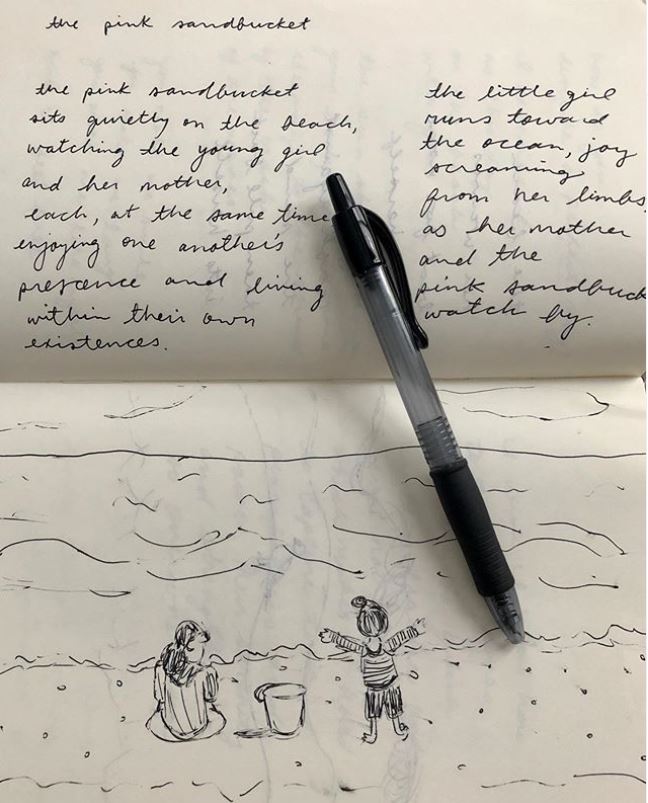 the pink sandbucket
the pink sandbucket
sits quietly on the beach,
watching the young girl
and her mother,
each, at the same time
enjoying one another's
presence and living
within their own
existences.
the little girl
runs toward
the ocean, joy
screaming
from her limbs,
as her mother
and the
pink sandbuck
watch by.